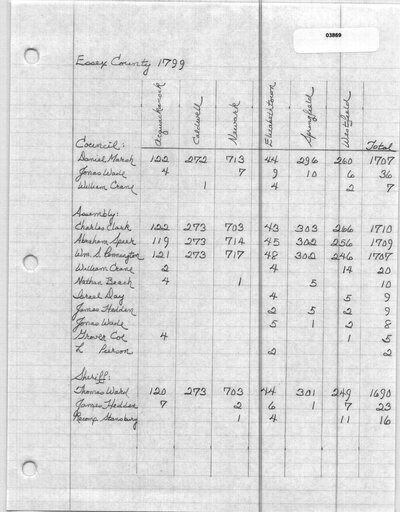 03869
Essex County 1799
Acquackanonk Caldwell Newark Elizabethtown Springfield Westfield
Council: Total
Daniel Marsh 122 272 713 44 296 260 1707
Jonas Wade 4 7 9 10 6 36
William Crane 1 4 2 7
Assembly:
Charles Clark 122 273 703 43 303 266 1710
Abraham Speer 119 273 714 45 302 256 1709
Wm. S. Pennington 121 273 717 48 302 246 1707
William Crane 2 4 14 20
Nathan Beach 4 1 5 10
Israel Day 4 5 9
James Hedden 2 5 2 9
Jonas Wade 5 1 2 8
Grover Coe 4 1 5
L Pierson 2 2
Sheriff:
Thomas Ward 120 273 703 44 301 249 1690
James Hedden 7 2 6 1 7 23
Recomp. Stansbury 1 4 11 16